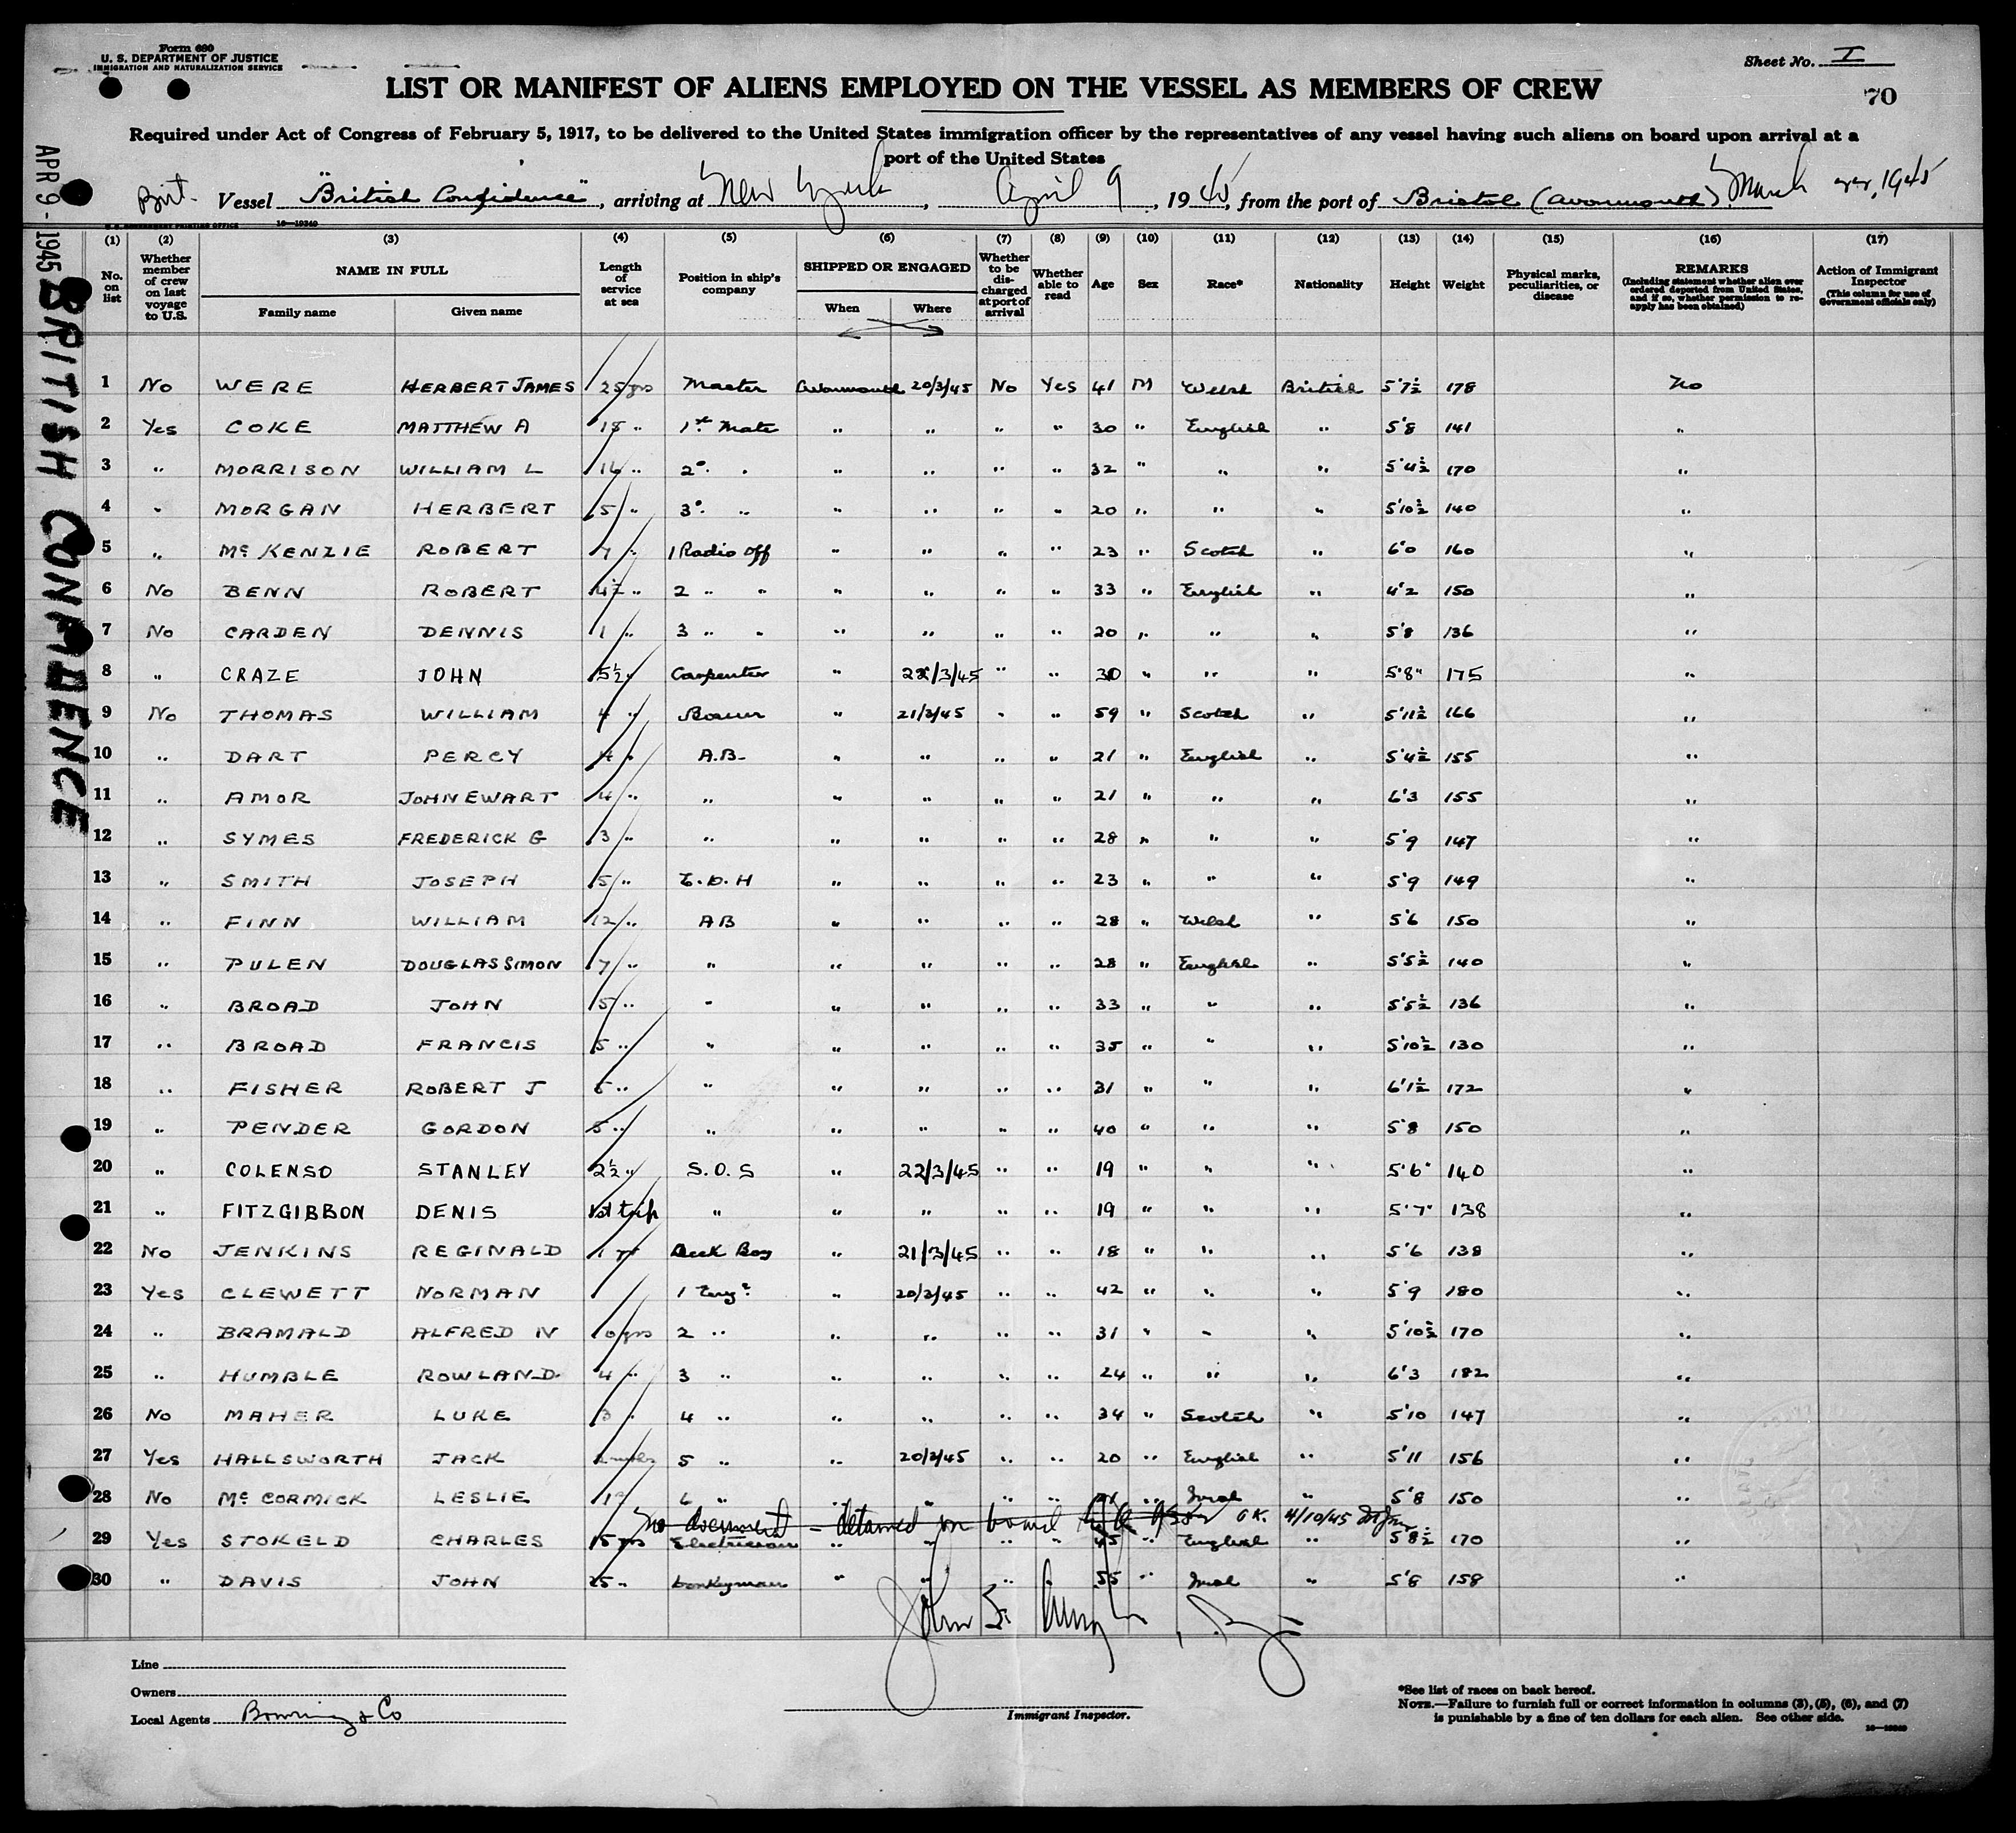 Form 680
U. S. DEPARTMENT OF JUSTICE
IMMIGRATION AND NATURALIZATION SERVICE
Sheet No. I
LIST OR MANIFEST OF ALIENS EMPLOYED ON THE VESSEL AS MEMBERS OF CREW
70
Required under Act of Congress of February 5, 1917, to be delivered to the United States immigration officer by the representatives of any vessel having such aliens on board upon arrival at a
port of the United States
APR 9 - 1945
BRITISH CONFIDENCE
Brit. Vessel "British Confidence", arriving at New York, April 9, 1945, from the port of Bristol (Avonmouth) March 1945
U. S. GOVERNMENT PRINTING OFFICE 16—19349
(1) (2) (3) (4) (5) (6) (7) (8) (9) (10) (11) (12) (13) (14) (15) (16) (17)
No. on list
Whether member of crew on last voyage to U.S.
NAME IN FULL
Family name Given name
Length of service at sea
Position in ship's company
SHIPPED OR ENGAGED
When Where
Whether to be discharged at port of arrival
Whether able to read
Age Sex Race* Nationality Height Weight
Physical marks, peculiarities, or disease
REMARKS
(Including statement whether alien ever ordered deported from United States, and if so, whether permission to reapply has been obtained)
Action of Immigrant Inspector
(This column for use of Government officials only)
1 No WERE HERBERT JAMES 25 yrs Master Avonmouth 20/3/45 No Yes 41 M Welsh British 5'7½ 178 No
2 Yes COKE MATTHEW A 15 " 1st Mate " " " " 30 " English " 5'8 141 "
3 " MORRISON WILLIAM L 16 " 2o. " " " " " 32 " " " 5'4½ 170 "
4 " MORGAN HERBERT 5 " 3o. " " " " " 20 " " " 5'10½ 140 "
5 " McKENZIE ROBERT 7 " 1 Radio off " " " " 23 " Scotch " 6'0 160 "
6 No BENN ROBERT 4½ " 2 " " " " " " 33 " English " 4'2 150 "
7 No CARDEN DENNIS 1 " 3 " " " " " " 20 " " " 5'8 136 "
8 " CRAZE JOHN 5½ " Carpenter " 22/3/45 " " 30 " " " 5'8" 175 "
9 No THOMAS WILLIAM 4 " Bosun " 21/3/45 " " 59 " Scotch " 5'11½ 166 "
10 " DART PERCY 4 " A.B. " " " " 21 " English " 5'4½ 155 "
11 " AMOR JOHN EWART 4 " " " " " " 21 " " " 6'3 155 "
12 " SYMES FREDERICK G 3 " " " " " " 28 " " " 5'9 147 "
13 " SMITH JOSEPH 5 " E.D.H " " " " 23 " " " 5'9 149 "
14 " FINN WILLIAM 12 " AB " " " " 28 " Welsh " 5'6 150 "
15 " PULEN DOUGLAS SIMON 7 " " " " " " 28 " English " 5'5½ 140 "
16 " BROAD JOHN 5 " " " " " " 33 " " " 5'5½ 136 "
17 " BROAD FRANCIS 5 " " " " " " 35 " " " 5'10½ 130 "
18 " FISHER ROBERT J 5 " " " " " " 31 " " " 6'1½ 172 "
19 " PENDER GORDON 5 " " " " " " 40 " " " 5'8 150 "
20 " COLENSO STANLEY 2½ " S.O.S " 22/3/45 " " 19 " " " 5'6" 140 "
21 " FITZGIBBON DENIS 1st trip " " " " " 19 " " " 5'7" 138 "
22 No JENKINS REGINALD 1 yr Deck Boy " 21/3/45 " " 18 " " " 5'6 138 "
23 Yes CLEWETT NORMAN 1 Engr " 20/3/45 " " 42 " " " 5'9 180 "
24 " BRAMALD ALFRED W 10 yrs 2 " " " " " 31 " " " 5'10½ 170 "
25 " HUMBLE ROWLAND 4 " 3 " " " " " 24 " " " 6'3 182 "
26 No MAHER LUKE 3 " 4 " " " " " 34 " Scotch " 5'10 147 "
27 Yes HALLSWORTH JACK 5 " " 20/3/45 " " 20 " English " 5'11 156 "
28 No McCORMICK LESLIE 6 " " " " " 21 " Irish " 5'8 150 "
no document - detained on board O.K. 4/10/45
29 Yes STOKELD CHARLES 15 yrs Electrician " " " " 45 " English " 5'8½ 170 "
30 " DAVIS JOHN 25 " Donkeyman " " " " 55 " Irish " 5'8 158 "
John
Line
Owners
Local Agents Bowring & Co
Immigrant Inspector.
*See list of races on back hereof.
NOTE.—Failure to furnish full or correct information in columns (3), (5), (6), and (7)
is punishable by a fine of ten dollars for each alien. See other side.
16—19349